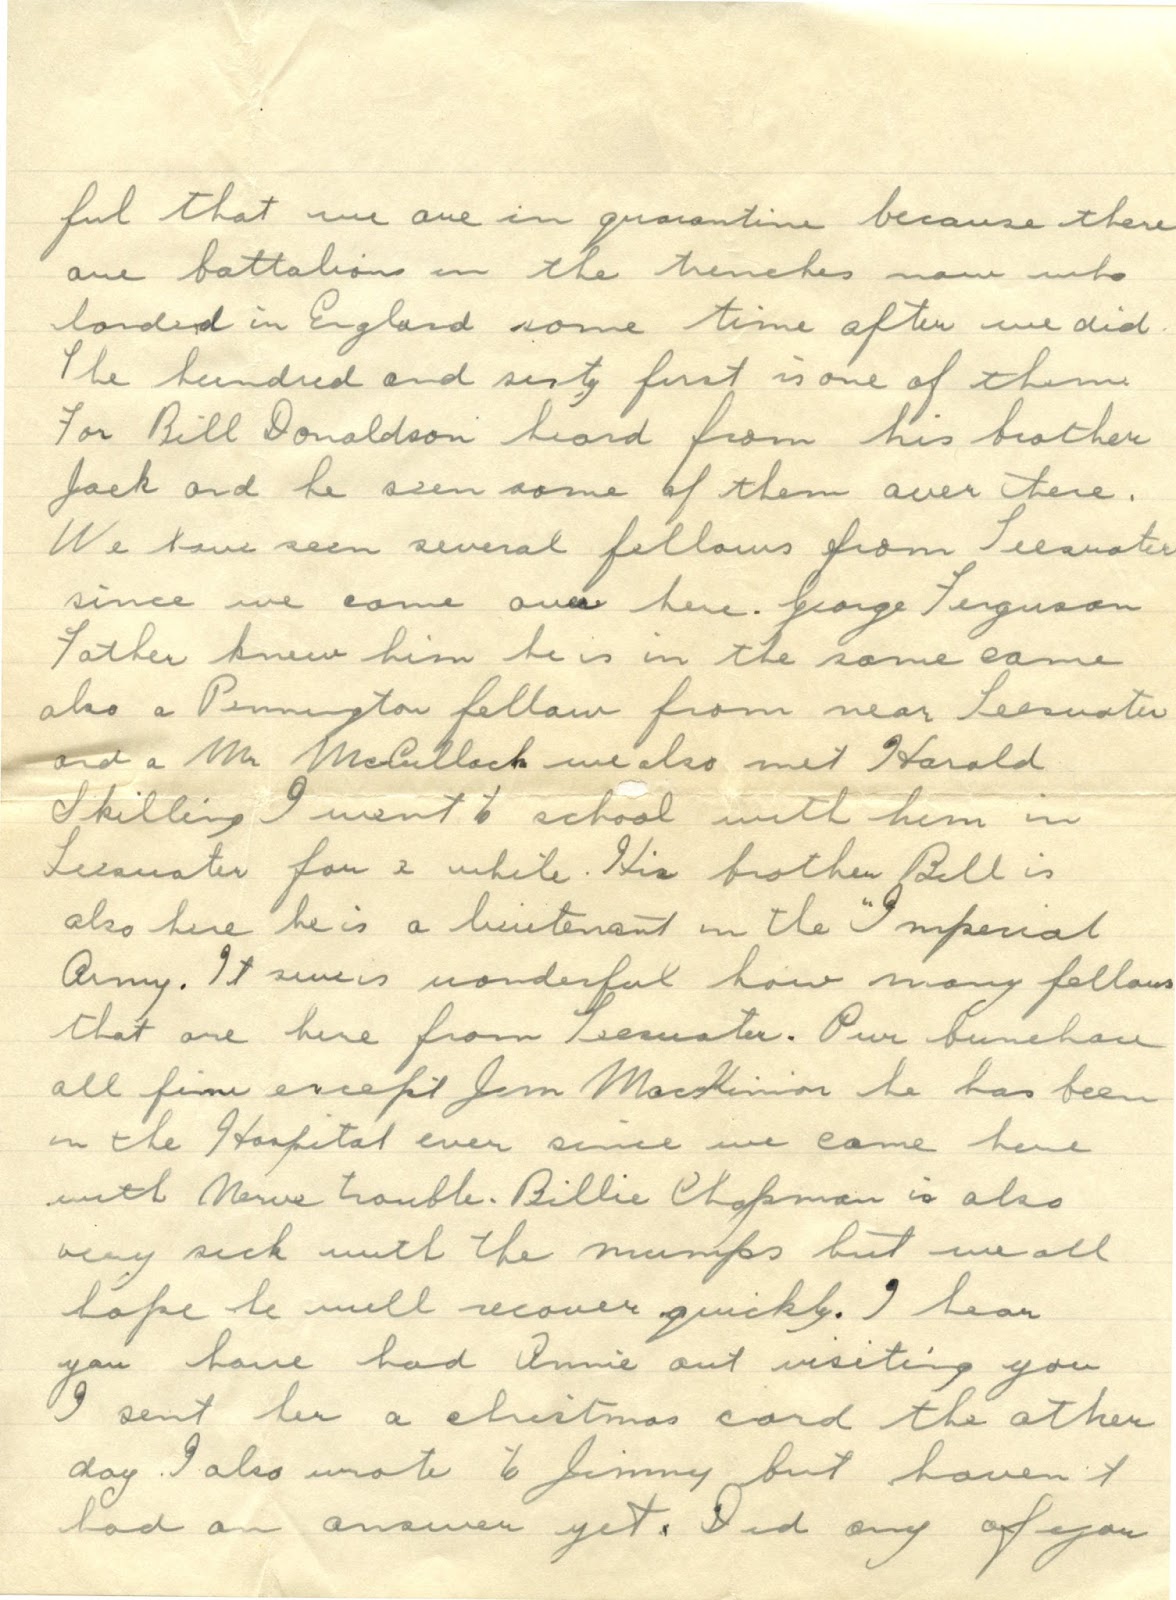 ful that we are in quarantine because there
are battalions in the trenches now who
landed in England some time after we did.
The hundred and sixty first is one of them
For Bill Donaldson heard from his brother
Jack and he seen some of them over there.
We have seen several fellows from Teeswater
since we came over here. George Ferguson
Father knew him he is in the same came
also a Pennington fellow from near Teeswater
and a Mr McCullock we also met Harold
Skilling I went to school with him in
Teeswater for a while. His brother Bill is
also here he is a lieutenant in the "Imperial
Army. It seems wonderful how many fellows
that are here from Teeswater. Our bunch are
all fine except Jim MacKinnon he has been
in the Hospital ever since we came here
with Nerve trouble. Billie Chapman is also
very sick with the mumps but we all
hope he will recover quickly. I hear
you have had Annie out visiting you
I sent her a christmas card the other
day. I also wrote to Jimmy but haven't
had an answer yet. Did any of your